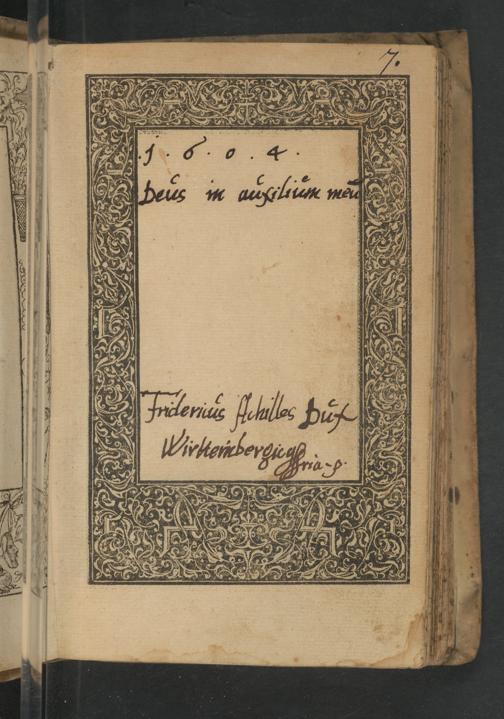 7.
.1.6.0.4.
Deus in auxilium meū
Fridericus Achilles Dux
Wirttembergicus